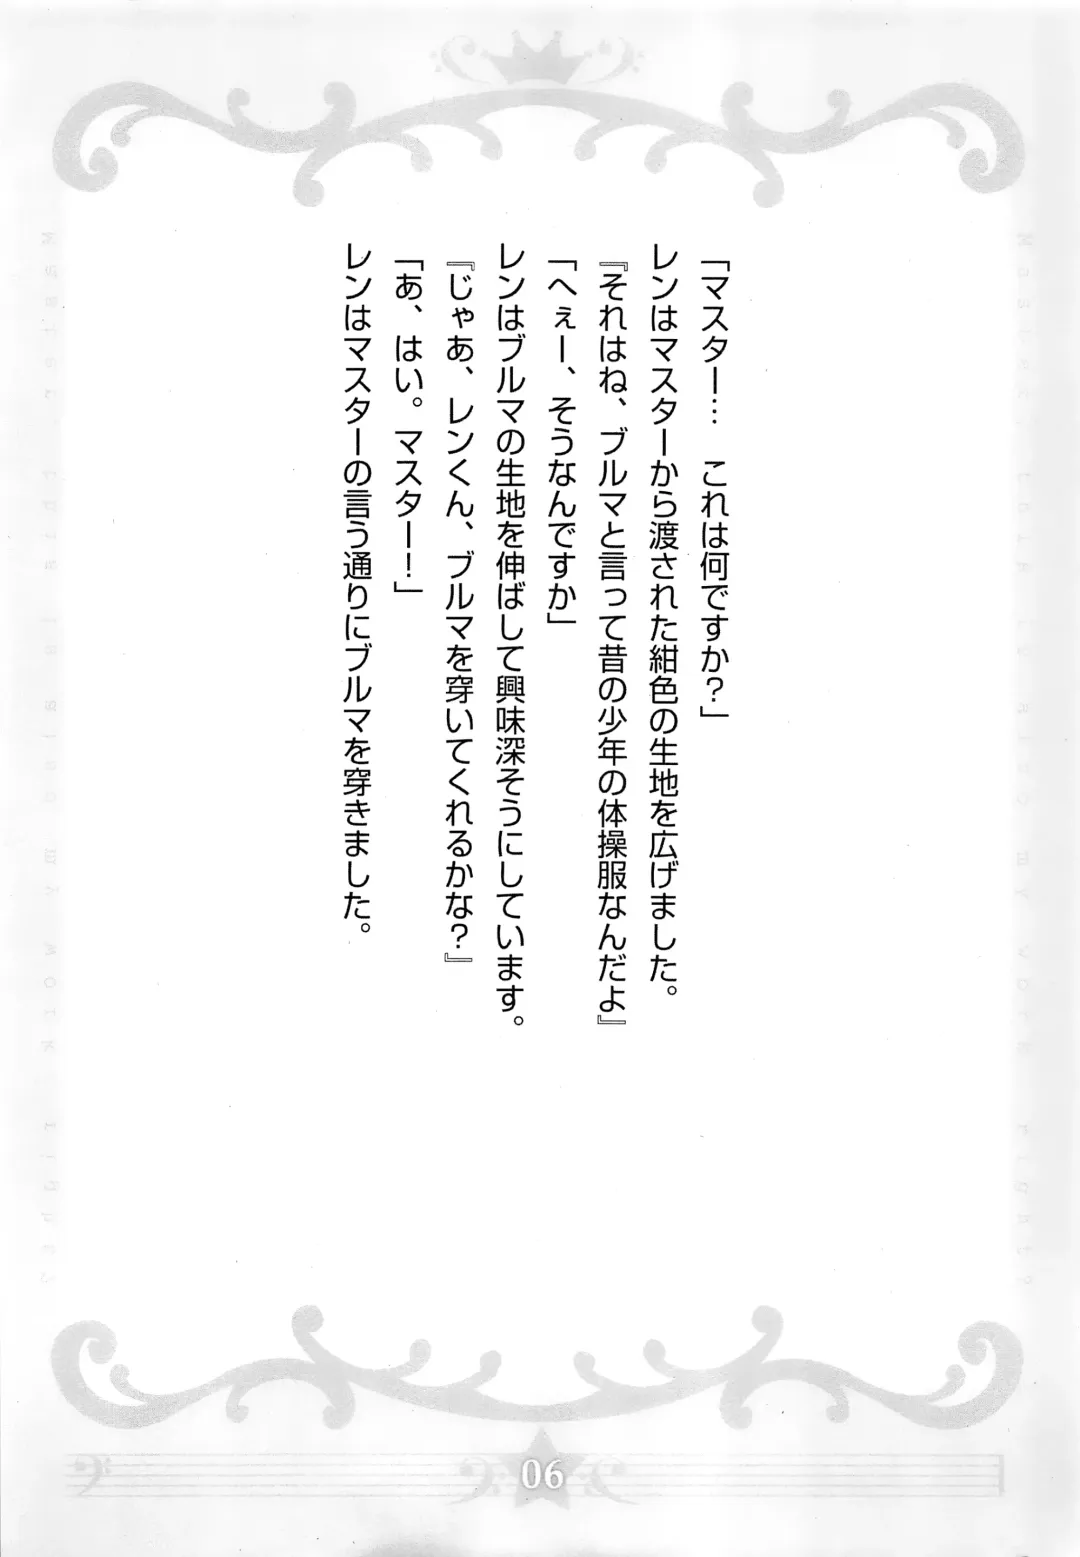 「マスター… これは何ですか？」
レンはマスターから渡された紺色の生地を広げました。
『それはね、ブルマと言って昔の少年の体操服なんだよ』
「へぇー、そうなんですか」
レンはブルマの生地を伸ばして興味深そうにしています。
『じゃあ、レンくん、ブルマを穿いてくれるかな？』
「あ、はい。マスター！」
レンはマスターの言う通りにブルマを穿きました。
06